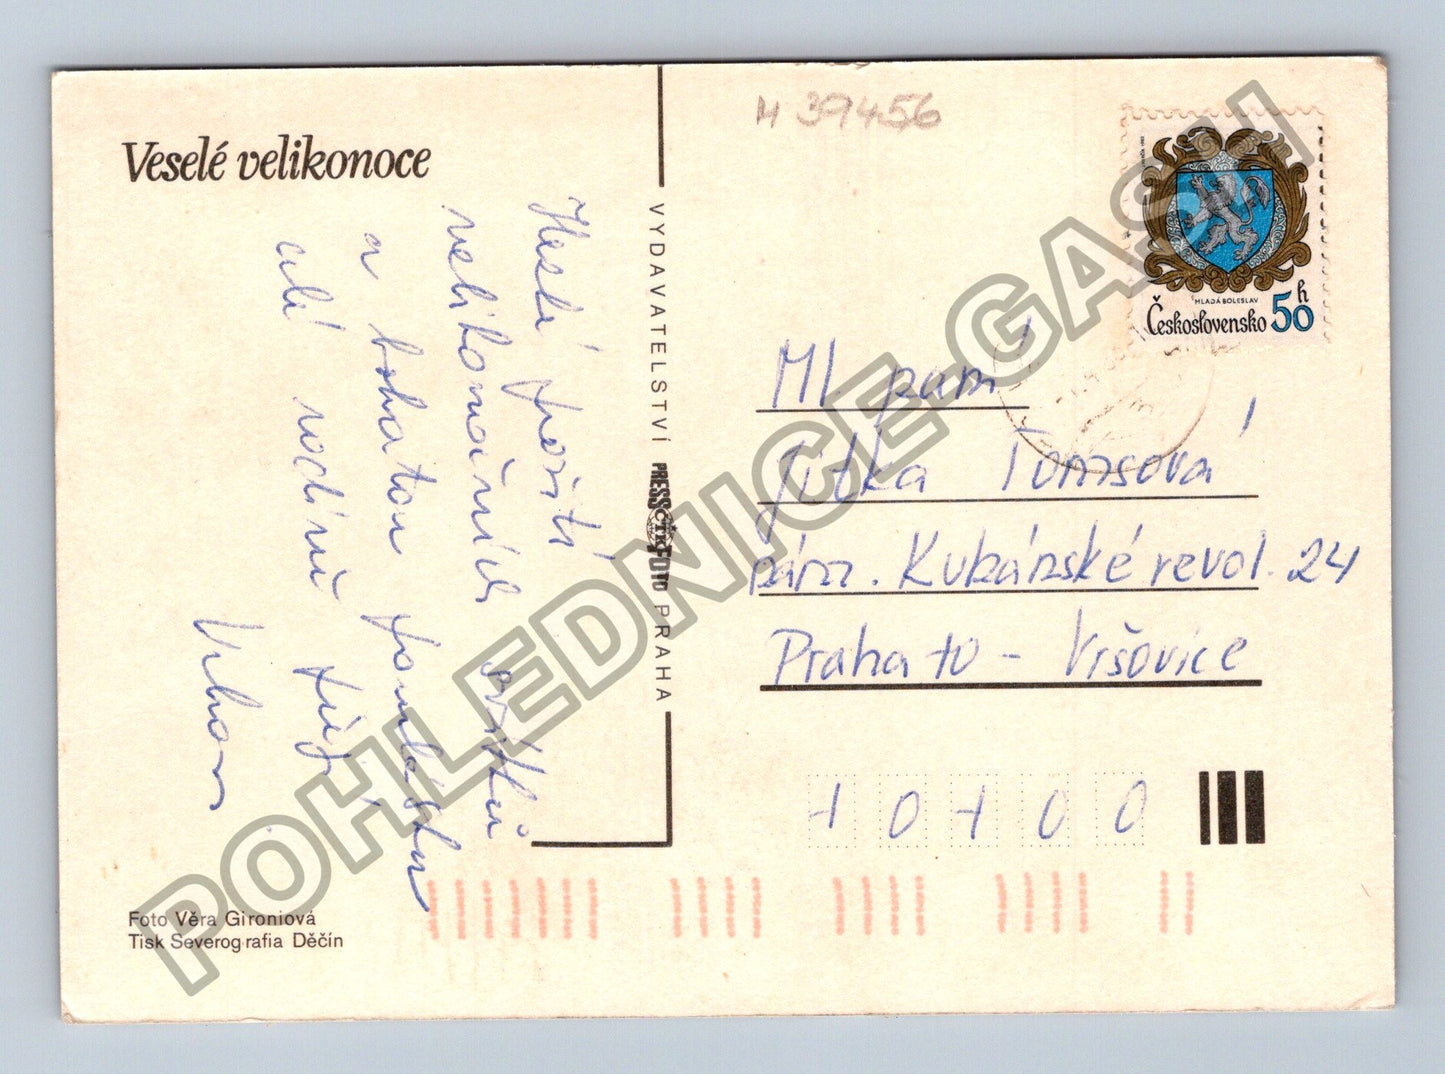 Veselé velikonoce
Veselé prožití
velikonočních svátků
a bohatou pomlázku
celé rodině přeje
Foto Věra Gironiová
Tisk Severografia Děčín
VYDAVATELSTVÍ PRESSFOTO PRAHA
ČTK
M 39456
MLADÁ BOLESLAV
Československo 50 h
Ml paní
Jitka Tomsová
nám. Kubánské revol. 24
Praha 10 - Vršovice
1 0 1 0 0
POHLEDNICE-GASU